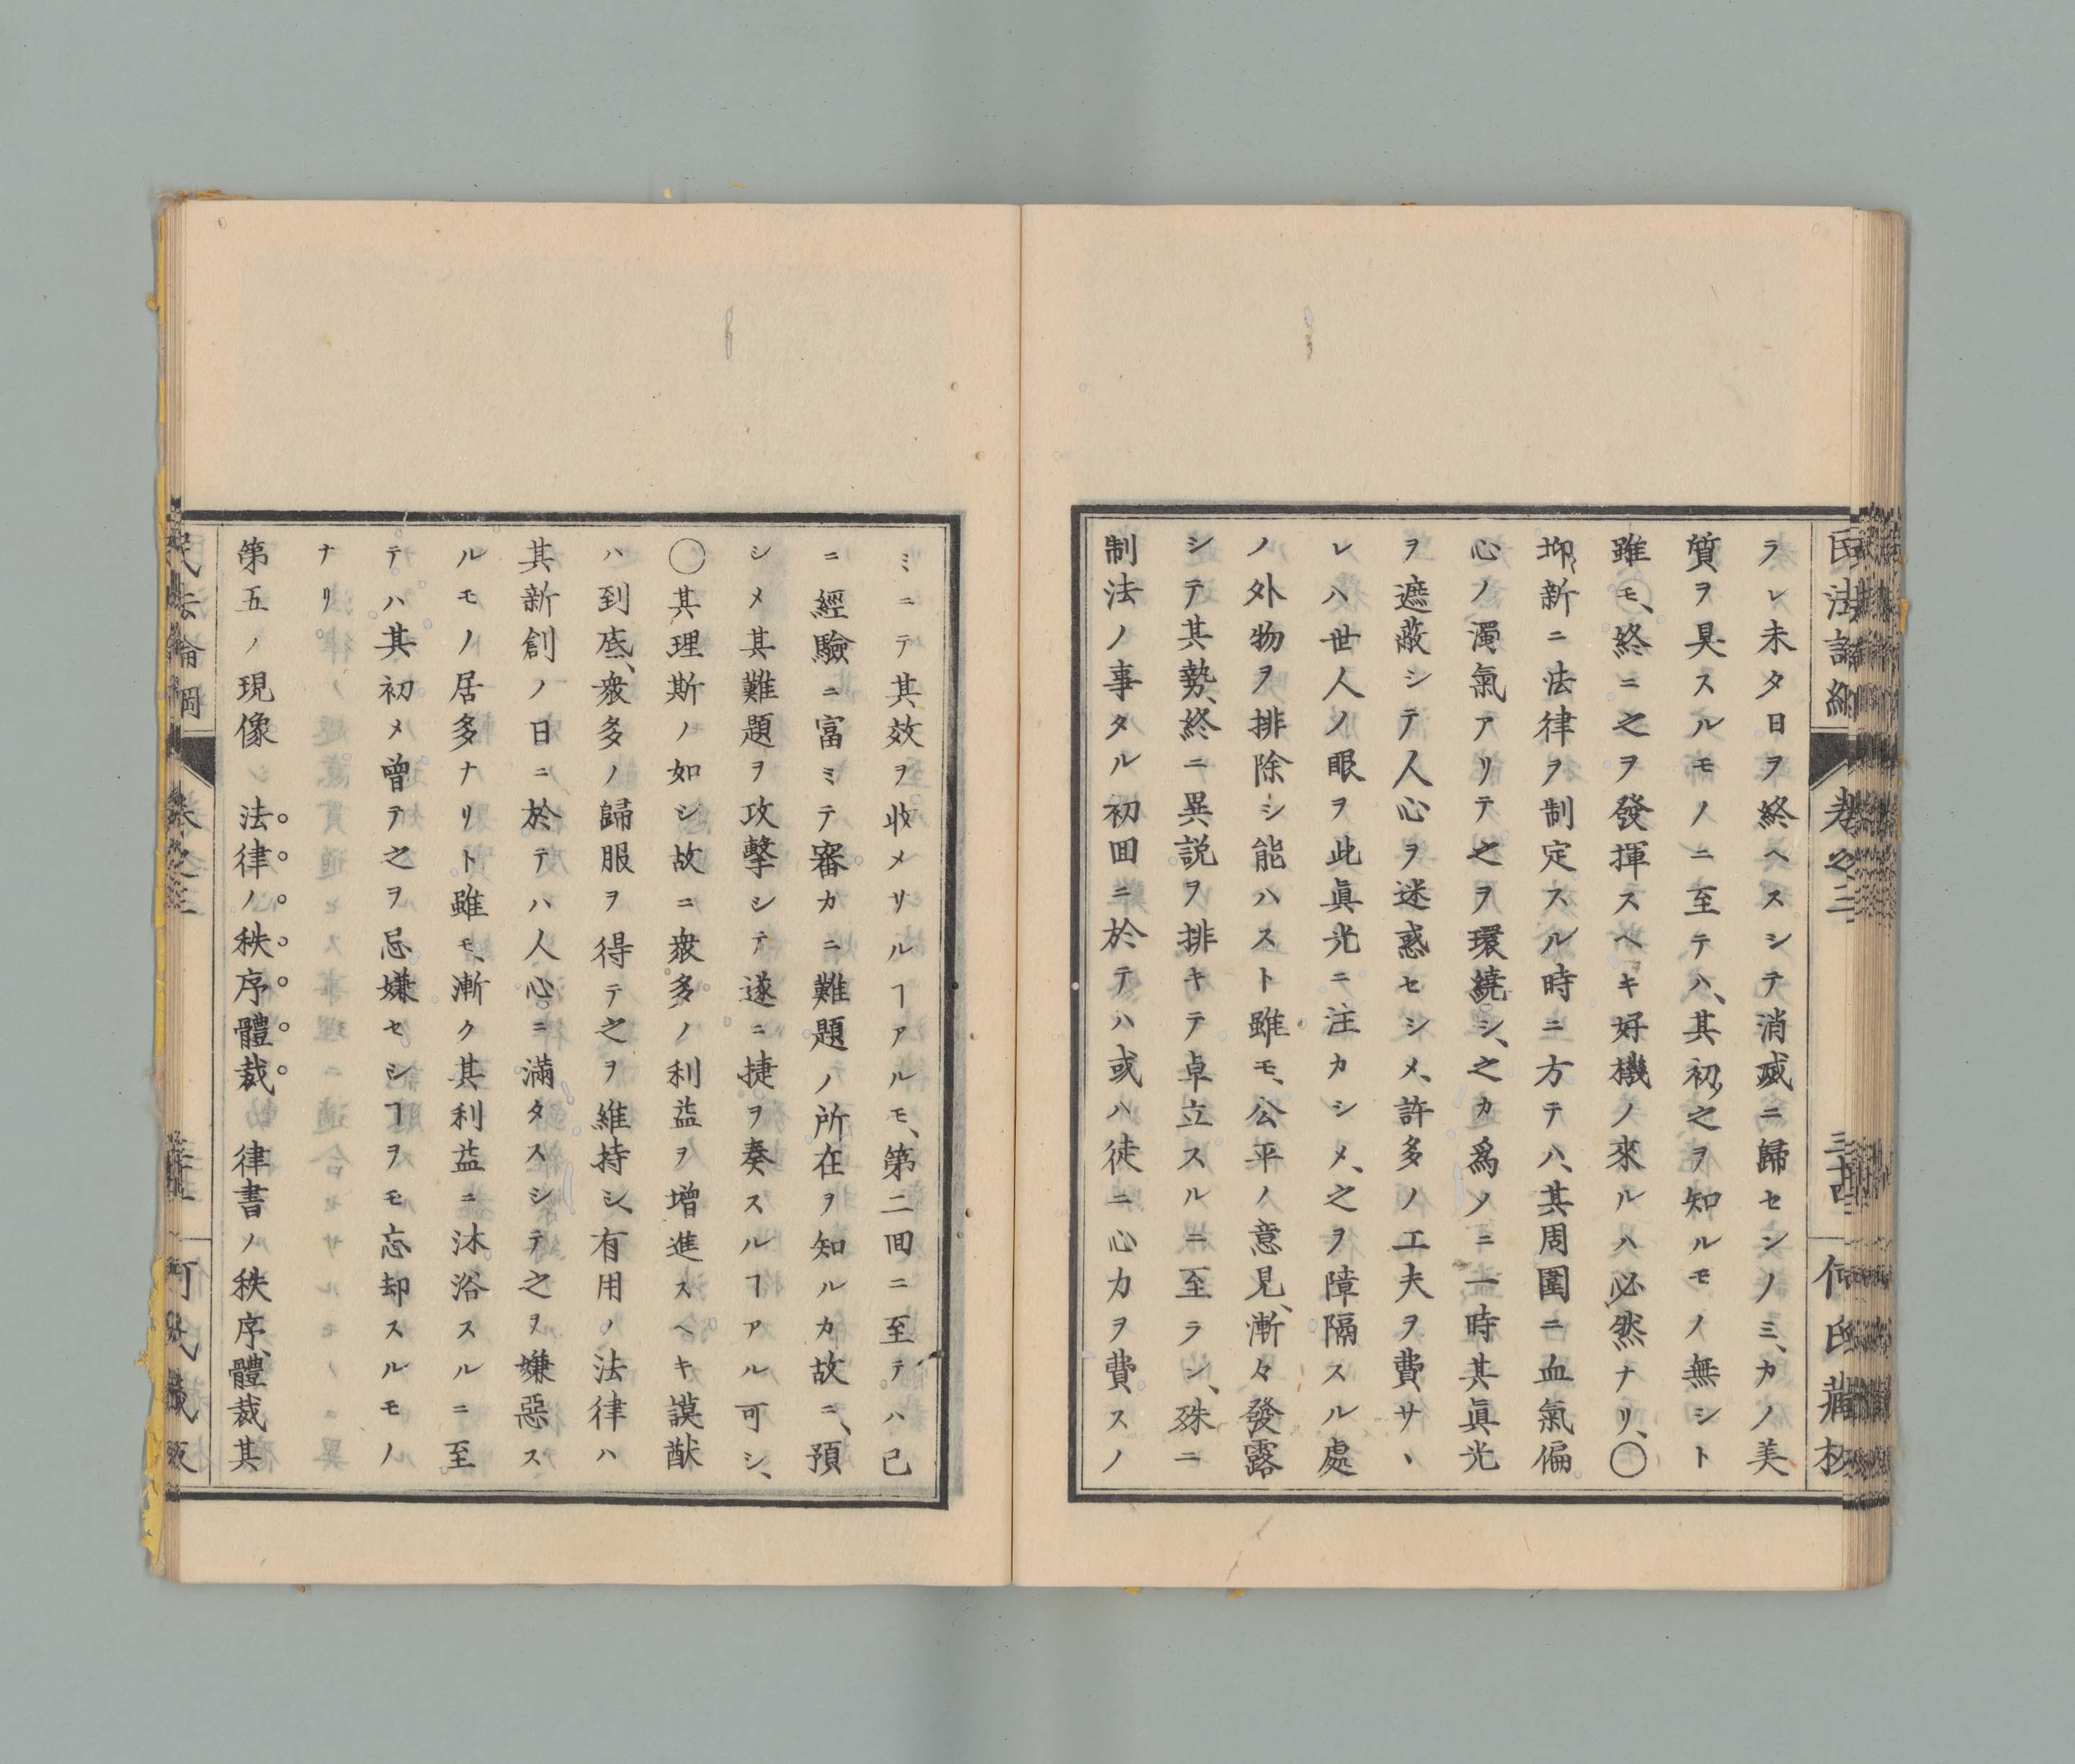 民法論綱 卷之三 三十四 何氏藏板
ラレ未タ日ヲ終ヘスシテ消滅ニ歸セシノミ、カノ美
質ヲ具スルモノニ至テハ、其初之ヲ知ルモノ無シト
雖モ、終ニ之ヲ發揮スヘキ好機ノ來ルハ必然ナリ、〇
抑新ニ法律ヲ制定スル時ニ方テハ、其周圍ニ血氣偏
心ノ濁氣アリテ之ヲ環繞シ、之カ爲ノニ一時其眞光
ヲ遮蔽シテ人心ヲ迷惑セシメ、許多ノ工夫ヲ費サヽ
レハ世人ノ眼ヲ此眞光ニ注カシメ、之ヲ障隔スル處
ノ外物ヲ排除シ能ハスト雖モ、公平ノ意見、漸々發露
シテ其勢、終ニ異説ヲ排キテ卓立スルニ至ラン、殊ニ
制法ノ事タル初回ニ於テハ或ハ徒ニ心力ヲ費スノ
ミニテ其效ヲ收メサルヿアルモ、第二回ニ至テハ已
ニ經驗ニ富ミテ審カニ難題ノ所在ヲ知ルカ故ニ、預
シメ其難題ヲ攻擊シテ遂ニ捷ヲ奏スルヿアル可シ、
〇其理斯ノ如シ故ニ衆多ノ利益ヲ增進スヘキ謨猷
ハ到底、衆多ノ歸服ヲ得テ之ヲ維持シ、有用ノ法律ハ
其新創ノ日ニ於テハ人心ニ滿タスシテ之ヲ嫌惡ス
ルモノ居多ナリト雖モ、漸ク其利益ニ沐浴スルニ至
テハ其初メ曾テ之ヲ忌嫌セシヿヲモ忘却スルモノ
ナリ
第五ノ現像　法律ノ秩序體裁　律書ノ秩序、體裁其
民法論綱 卷之三 何氏藏版